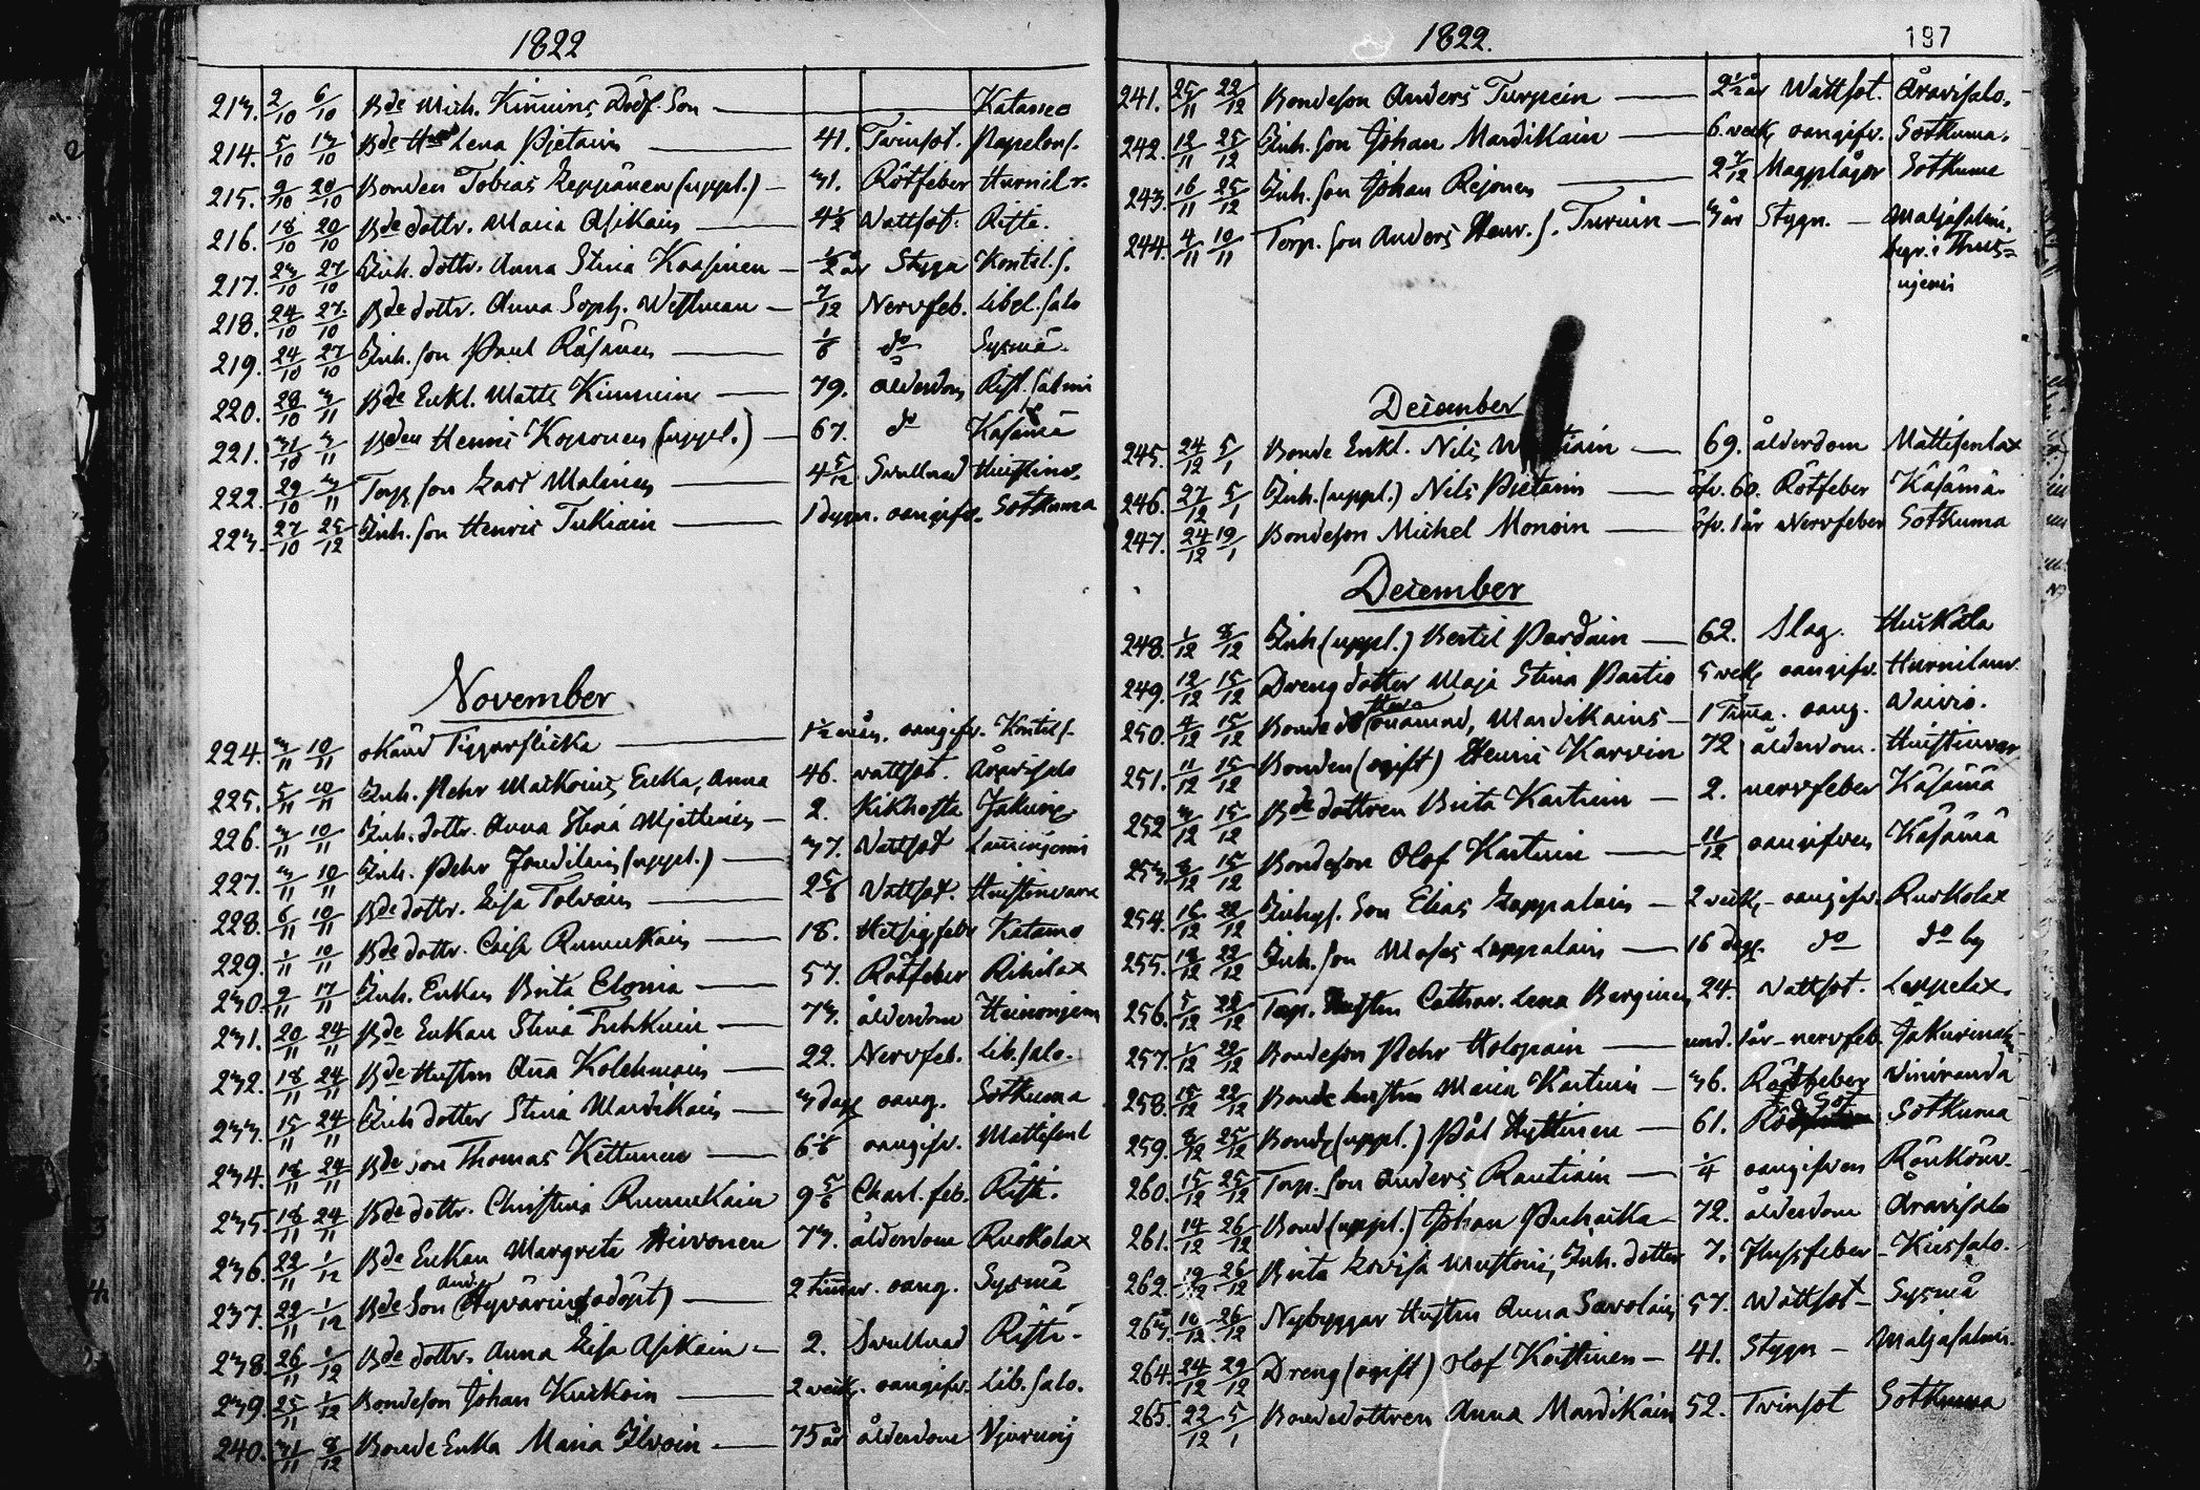 1822
213. 2/10 6/10 Bde Mich. Kinnuins Dödf. Son — Katamo
214. 5/10 13/10 Bde Hust Lena Pjetarin — 41. Tvinsot.
215. 9/10 20/10 Bonden Tobias Leppänen (uppl.) — 31. Rötfeber Hurnil v.
216. 18/10 20/10 Bde dottr. Maria Asikain — 4 1/2 Vattsot. Riste.
217. 23/10 27/10 Inh. dottr. Anna Stina Kaasinen — 1/2 år Stygn Kontil. s.
218. 24/10 27/10 Bde dottr. Anna Soph. Westman — 7/12 Nervfeb. Libel. salo
219. 24/10 27/10 Inh. son Paul Räsänen — 1/6 do Sysmä.
220. 28/10 3/11 Bde Enkl. Matts Kinnuin — 79. ålderdom Rist. salmi
221. 31/10 3/11 Bden Henric Koponen (uppl.) — 67. do Käsämä
222. 29/10 3/11 Torp. son Lars Malinen — 4 5/12 Svullnad Huistinv.
223. 27/10 25/12 Inh. son Henric Tukiain — 1 dygn. oangifv. Sotkuma
November
224. 3/11 10/11 okänd Tiggarflicka — 1 1/2 mån. oangifv. Kontil s.
225. 5/11 10/11 Inh. Pehr Matkoins Enka, Anna 46. vattsot. Åravisalo
226. 3/11 10/11 Inh. dottr. Anna Stina Mjettinen — 2. Kikhosta
227. 3/11 10/11 Inh. Pehr (uppl.) — 37. Vattsot
228. 6/11 10/11 Bde dottr. Lisa Tolvain — 2 5/6 Vattsot. Huistinvara
229. 1/11 10/11 Bde dottr. Caisa Rummukain — 18. Hetsigfeb Katamo
230. 9/11 17/11 Inh. Enkan Brita Eloria — 57. Rötfeber Rihilax
231. 20/11 24/11 Bde Enkan Stina Tuhkuin — 73. ålderdom Heinonjemi
232. 18/11 24/11 Bde Hustrn Aña Kolehmain — 22. Nervfeb. Lib. salo.
233. 15/11 24/11 Inh dotter Stina Mardikain — 3 dagr oang. Sotkuma
234. 18/11 24/11 Bde son Thomas Kettunen — 6 1/6 oangifv. Mattisenl
235. 18/11 24/11 Bde dottr. Christina Rummukain 9 5/6 Charl. feb. Risti.
236. 22/11 1/12 Bde Enkan Margreta Hirvonen 73. ålderdom Ruokolax
237. 22/11 1/12 Bde Son (And. Hyvärins, odöpt) — 2 timmar. oang. Sysmä
238. 26/11 1/12 Bde dottr. Anna Lisa Asikain — 2. Svullnad Risti.
239. 25/11 1/12 Bondeson Johan Kurkoin — 2 veck. oangifv. Lib. salo.
240. 31/11 8/12 Bonde Enka Maria Ilvoin — 75 år ålderdom
1822.
197
241. 25/11 22/12 Bondeson Anders Turpein — 2 1/2 år Wattsot. Åravisalo.
242. 12/11 25/12 Inh. son Johan Mardikain — 6. veck, oangifv. Sotkuma.
243. 16/11 25/12 Inh. son Johan Rejonen — 2 7/12 Magplågor Sotkuma
244. 4/11 10/11 Torp. son Anders Henr. s. Turuin — 3 år Stygn. — Maljasalmi,
begr. i Thus=
njemi
December
245. 24/12 5/1 Bonde Enkl. Nils — 69. ålderdom Mattisenlax
246. 27/12 5/1 Inh. (uppl.) Nils Pjetarin — öfv. 60. Rötfeber Käsämä.
247. 24/12 19/1 Bondeson Michel Monoin — öfv. 1 år Nervfeber Sotkuma
December
248. 1/12 8/12 Inh (uppl.) Bertil Pardain — 62. Slag. Huikola
249. 12/12 15/12 Dreng dotter Maja Stina Partio 5 veck, oangifv. Hurnilamv.
250. 4/12 15/12 Bonde do onämnd, Mardikains — 1 Tima. oang. Vaivio.
251. 11/12 15/12 Bonden (ogift) Henric Karvin 72 ålderdom. Huistinvar
252 3/12 15/12 Bde dottren Brita Kartuin — 2. nervfeber Käsämä
253. 8/12 15/12 Bondeson Olof Kartuin — 11/12 oangifven Käsämä
254. 16/12 22/12 Inhys. Son Elias Lappalain — 2 veck, — oangifv. Ruokolax
255. 18/12 22/12 Inh. son Moses Lappalain — 16 dagr. do do by
256. 5/12 22/12 Torp. Hustrn Cathar. Lena Berginen 24. Vattsot. Leppelax.
257. 1/12 22/12 Bondeson Pehr Holopain — und. 1 år — nervfeb.
258. 15/12 22/12 Bonde hustrn Maria Kartuin — 36. Rötfeber Viniranda
259. 8/12 25/12 Bonde (uppl.) Pål Hyttinen — 61. Rödsot Sotkuma
260. 15/12 25/12 Torp. son Anders Rautiain — 1/4 oangifven Rönkönv.
261. 14/12 26/12 Bond (uppl.) Johan Puhakka — 72. ålderdom Åravisalo
262. 19/12 26/12 Brita Lovisa Mustoin, Inh. dotter 7. Flussfeber — Kiessalo.
263. 10/12 26/12 Nybyggar Hustrn Anna Savolain 57. Wattsot — Sysmä
264. 24/12 29/12 Dreng (ogift) Olof Koistinen — 41. Stygn — Maljasalmi.
265. 22/12 5/1 Bondedottren Anna Mardikain 52. Tvinsot Sotkuma